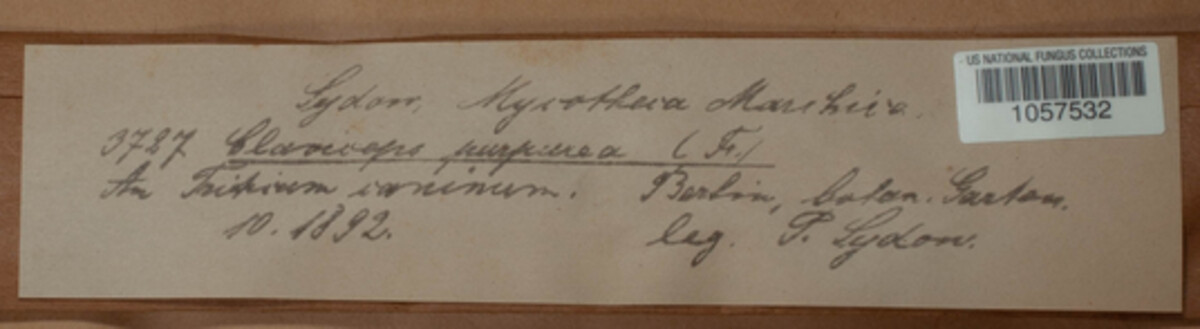 US NATIONAL FUNGUS COLLECTIONS
1057532
Sydow, Mycotheca Marchica.
3727 Claviceps purpurea (Fr.)
An Triticum caninum. Berlin, botan. Garten.
10. 1892. leg. P. Sydow.